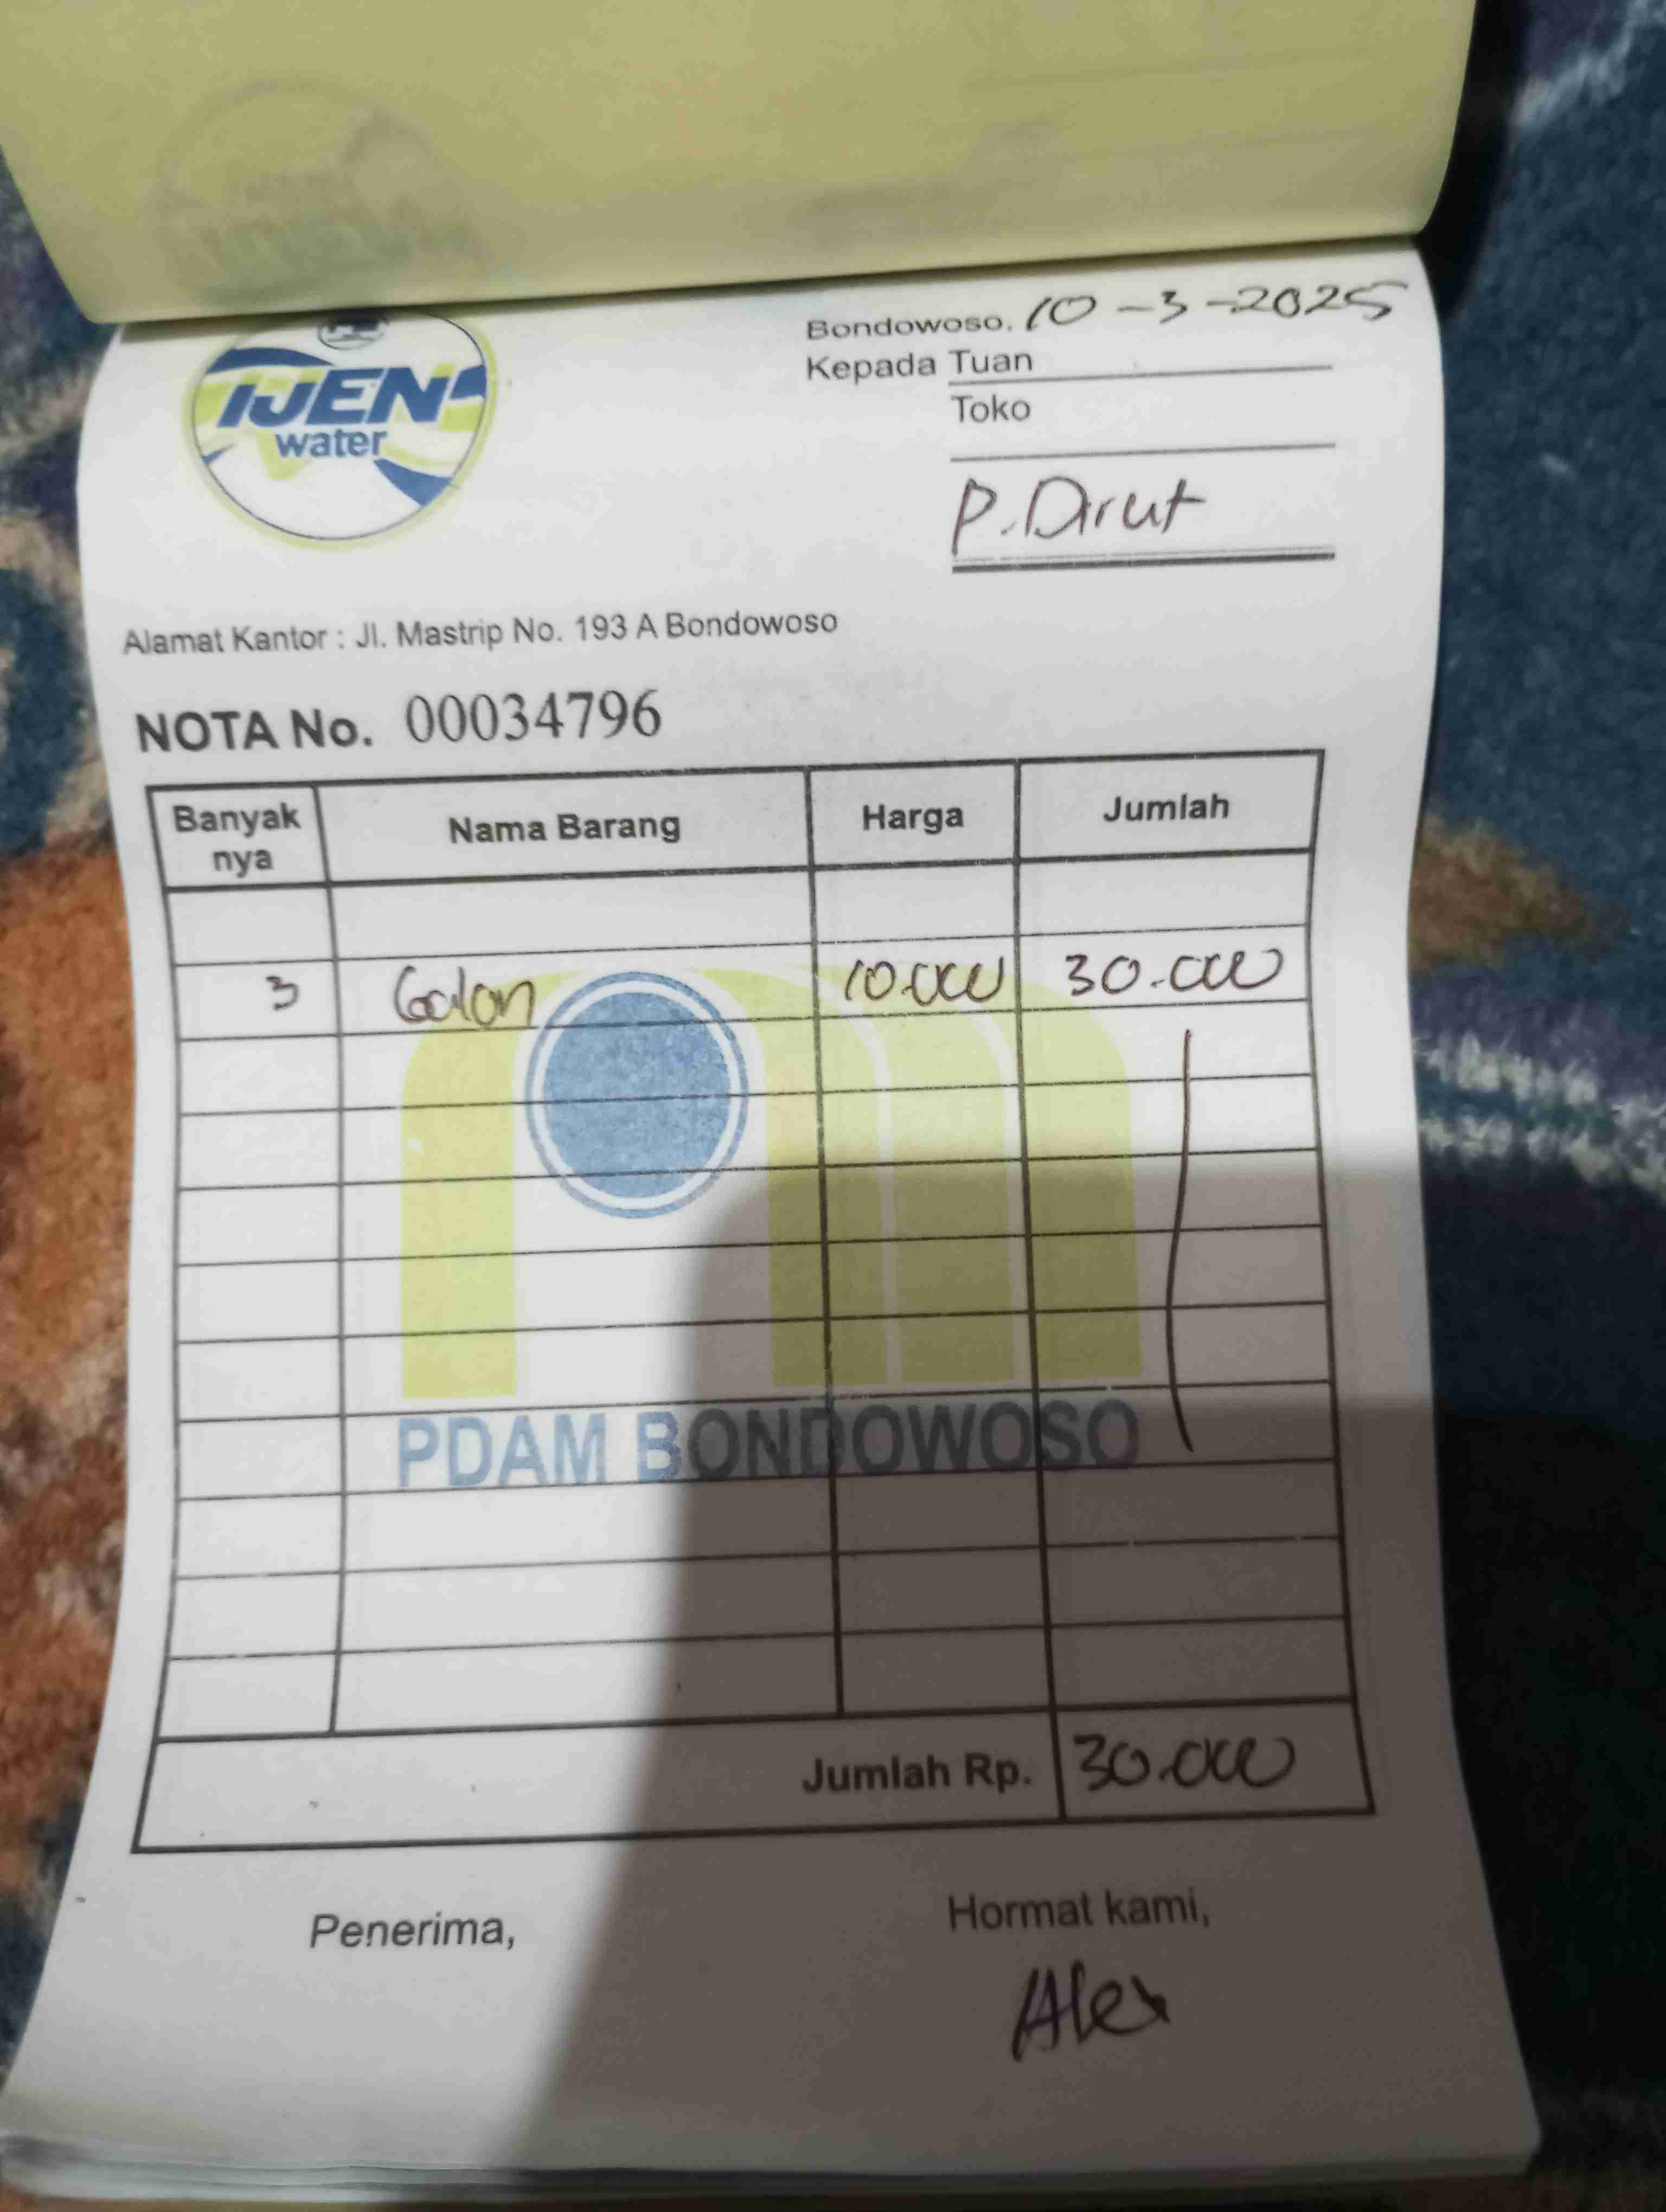 IJEN
water
Bondowoso, 10-3-2025
Kepada Tuan
Toko
P. Dirut
Alamat Kantor : Jl. Mastrip No. 193 A Bondowoso
NOTA No. 00034796
Banyak nya Nama Barang Harga Jumlah
3 Galon 10.000 30.000
PDAM BONDOWOSO
Jumlah Rp. 30.000
Penerima, Hormat kami,
Alex